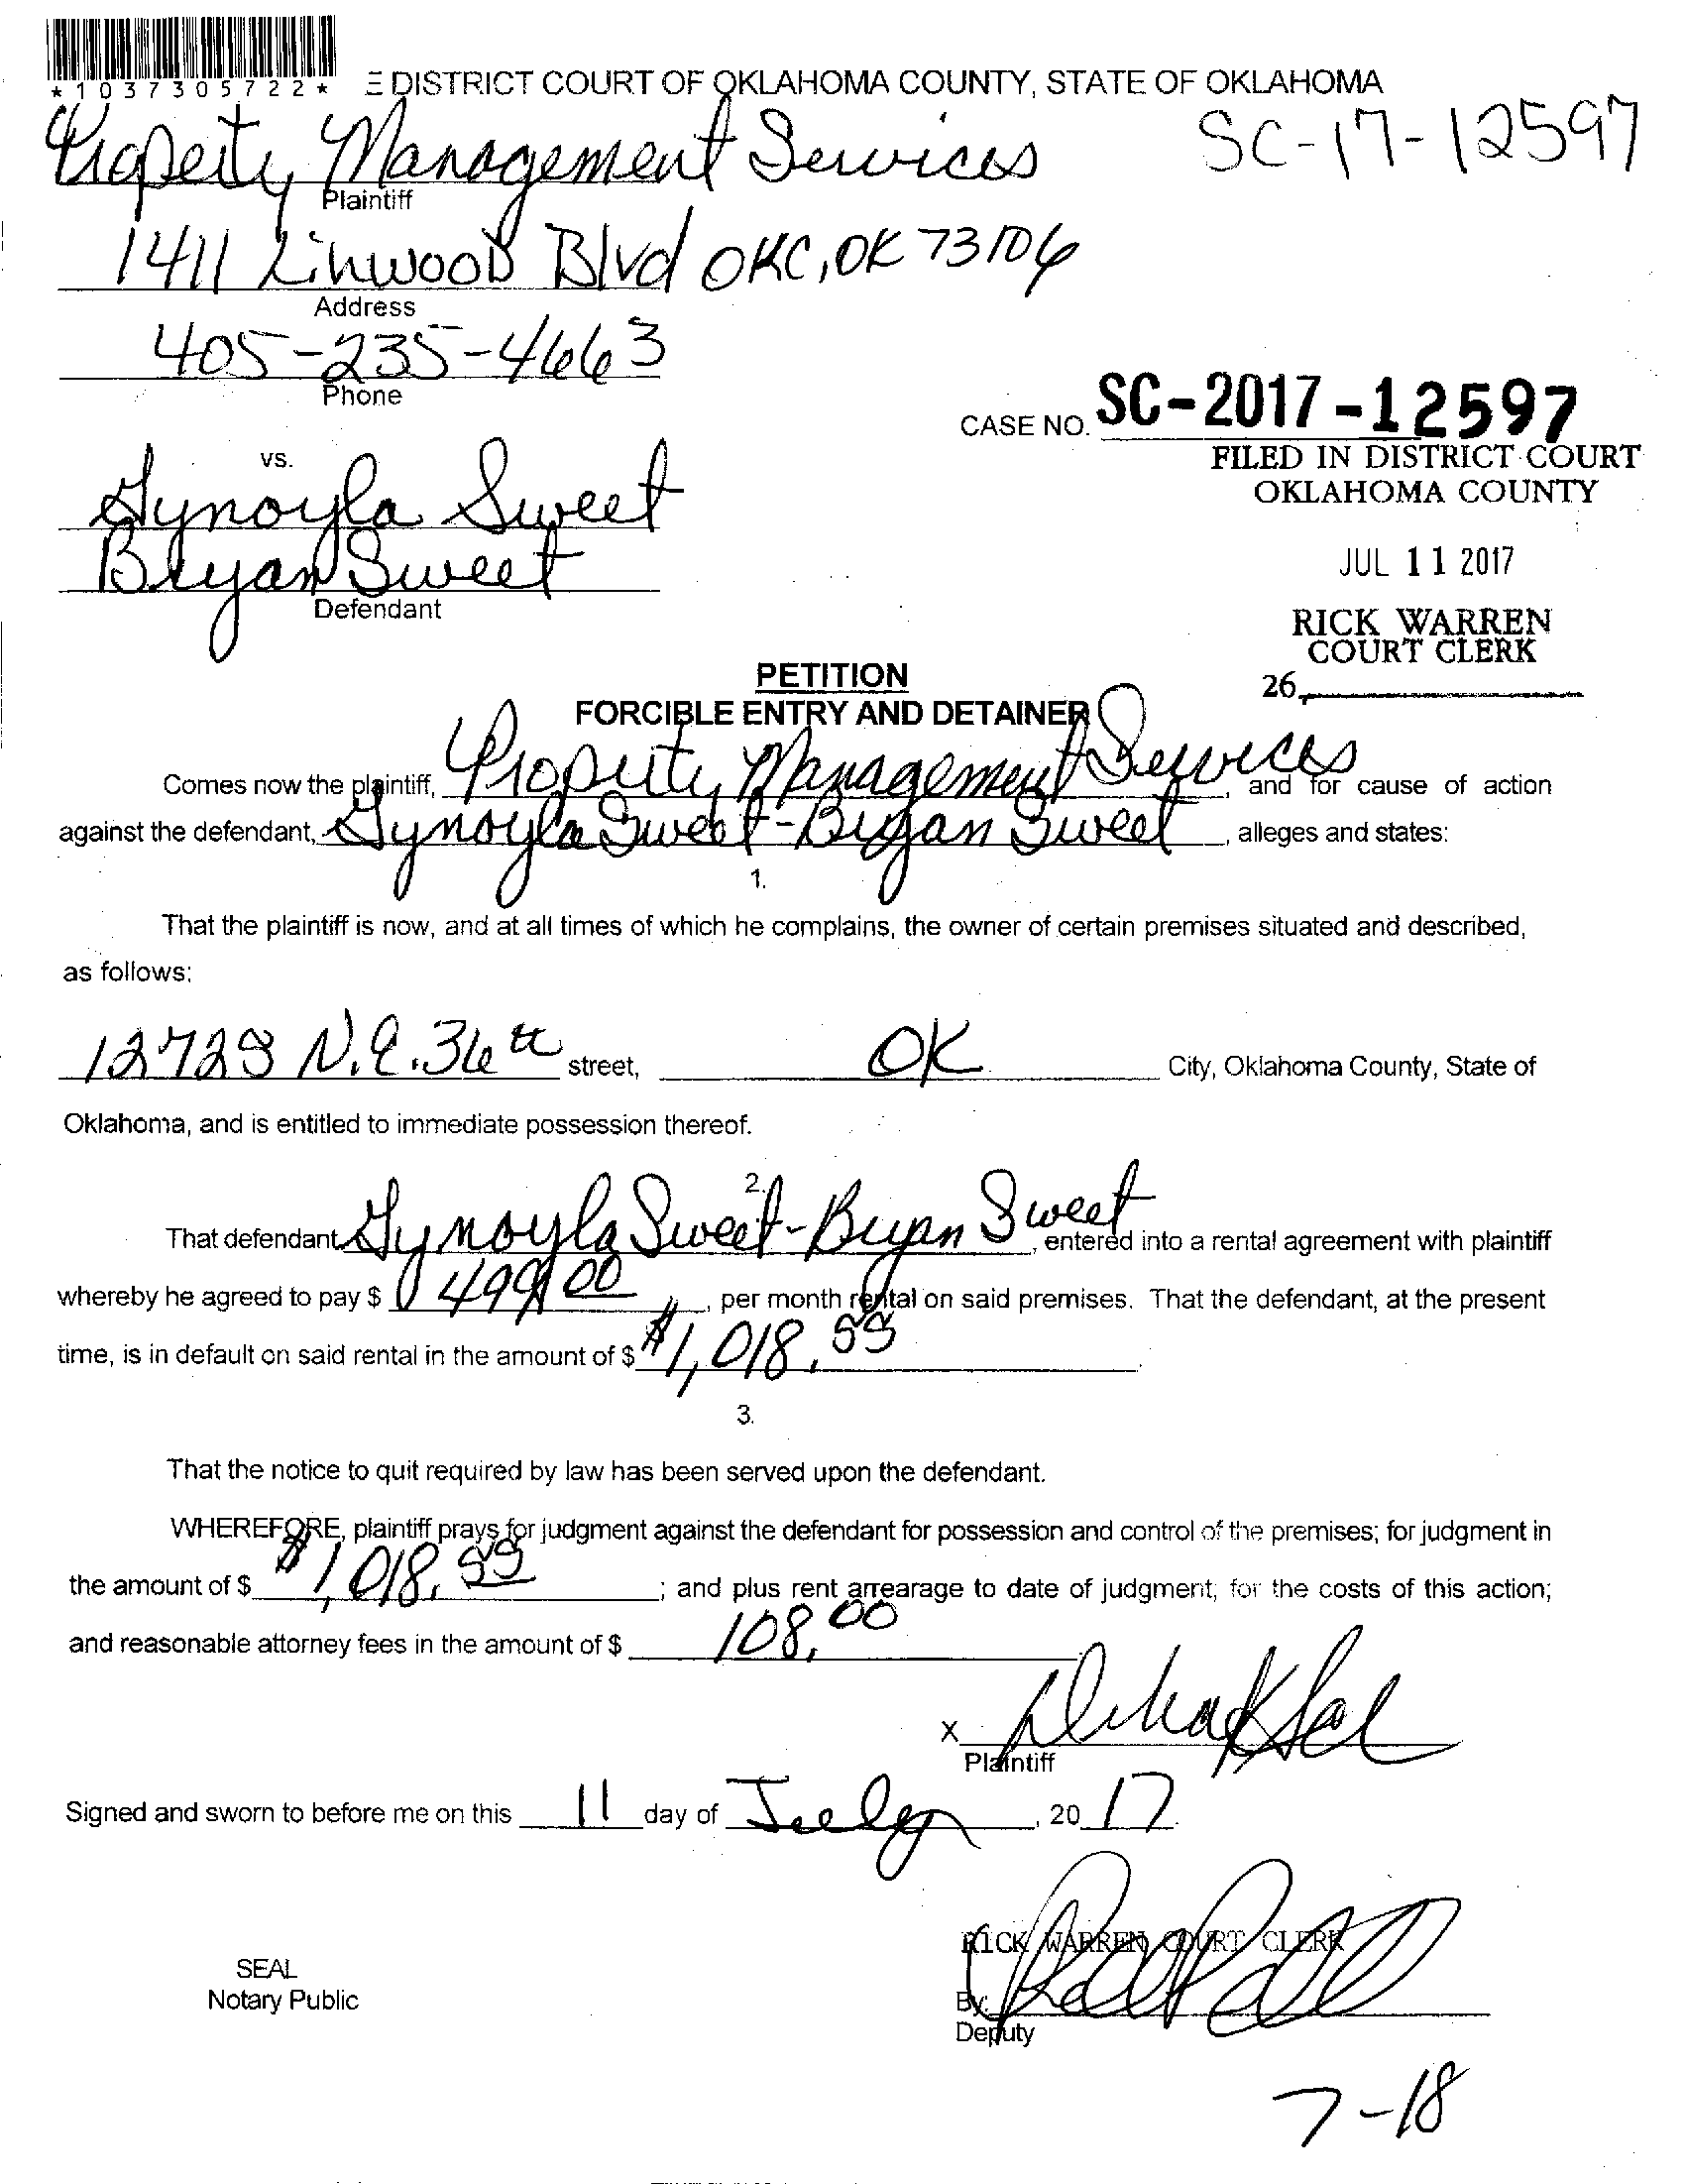 *1037305722* E DISTRICT COURT OF OKLAHOMA COUNTY, STATE OF OKLAHOMA
Property Management Services SC-17-12597
Plaintiff
1411 Linwood Blvd OKC, OK 73106
Address
405-235-4663
Phone
CASE NO. SC-2017-12597
FILED IN DISTRICT COURT
OKLAHOMA COUNTY
vs.
Synoyla Sweet
Bryan Sweet
Defendant
JUL 11 2017
RICK WARREN
COURT CLERK
26
PETITION
FORCIBLE ENTRY AND DETAINER
Comes now the plaintiff, Property Management Services, and for cause of action
against the defendant, Synoyla Sweet-Bryan Sweet, alleges and states:
1.
That the plaintiff is now, and at all times of which he complains, the owner of certain premises situated and described,
as follows:
12728 N.E. 36th street, OK City, Oklahoma County, State of
Oklahoma, and is entitled to immediate possession thereof.
2.
That defendant Synoyla Sweet-Bryan Sweet, entered into a rental agreement with plaintiff
whereby he agreed to pay $ 499.00, per month rental on said premises. That the defendant, at the present
time, is in default on said rental in the amount of $ $1,018.
3.
That the notice to quit required by law has been served upon the defendant.
WHEREFORE, plaintiff prays for judgment against the defendant for possession and control of the premises; for judgment in
the amount of $ $1,018. ; and plus rent arrearage to date of judgment; for the costs of this action;
and reasonable attorney fees in the amount of $ 108.00
X
Plaintiff
Signed and sworn to before me on this 11 day of July, 20 17.
RICK WARREN COURT CLERK
SEAL
Notary Public
By:
Deputy
7-18